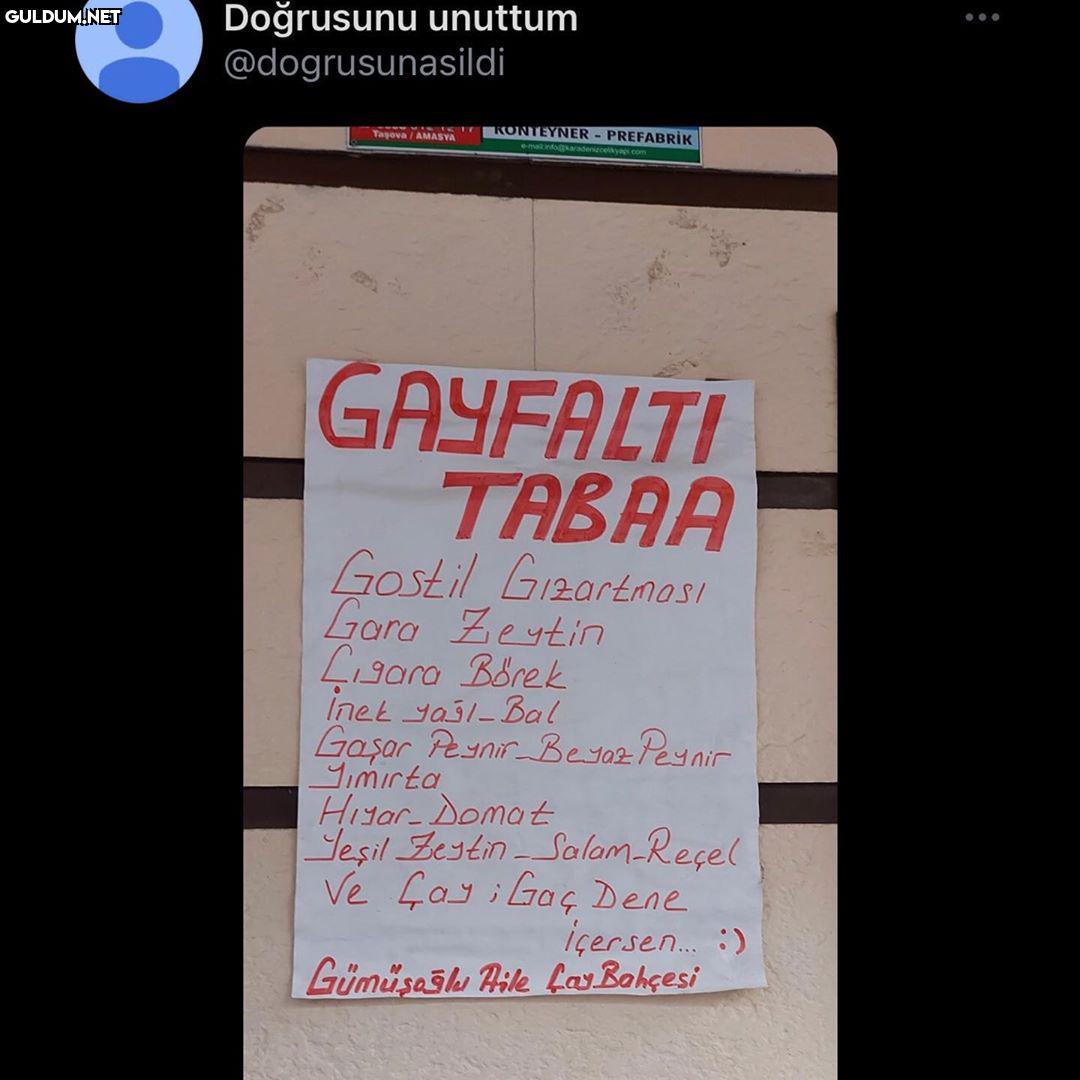 GULDUM.NET
Doğrusunu unuttum
@dogrusunasildi
Taşova / AMASYA
KONTEYNER - PREFABRİK
e-mail:info@karadenizcelikyapi.com
GAYFALTI
TABAA
Gostil Gızartması
Gara Zeytin
Çıgara Börek
İnek yağı_Bal
Gaşar Peynir_Beyaz Peynir
Yımırta
Hıyar_Domat
Yeşil Zeytin_Salam_Reçel
Ve Çay ; Gaç Dene
İçersen... :)
Gümüşoğlu Aile Çay Bahçesi